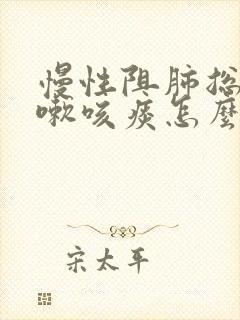 慢性阻肺总
嗽咳痰怎麽
宋太平